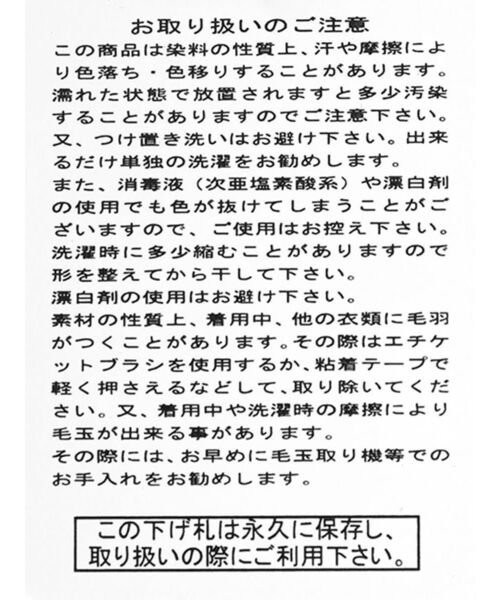 お取り扱いのご注意
この商品は染料の性質上、汗や摩擦によ
り色落ち・色移りすることがあります。
濡れた状態で放置されますと多少汚染
することがありますのでご注意下さい。
又、つけ置き洗いはお避け下さい。出来
るだけ単独の洗濯をお勧めします。
また、消毒液（次亜塩素酸系）や漂白剤
の使用でも色が抜けてしまうことがご
ざいますので、ご使用はお控え下さい。
洗濯時に多少縮むことがありますので
形を整えてから干して下さい。
漂白剤の使用はお避け下さい。
素材の性質上、着用中、他の衣類に毛羽
がつくことがあります。その際はエチケ
ットブラシを使用するか、粘着テープで
軽く押さえるなどして、取り除いてくだ
さい。又、着用中や洗濯時の摩擦により
毛玉が出来る事があります。
その際には、お早めに毛玉取り機等での
お手入れをお勧めします。
この下げ札は永久に保存し、
取り扱いの際にご利用下さい。